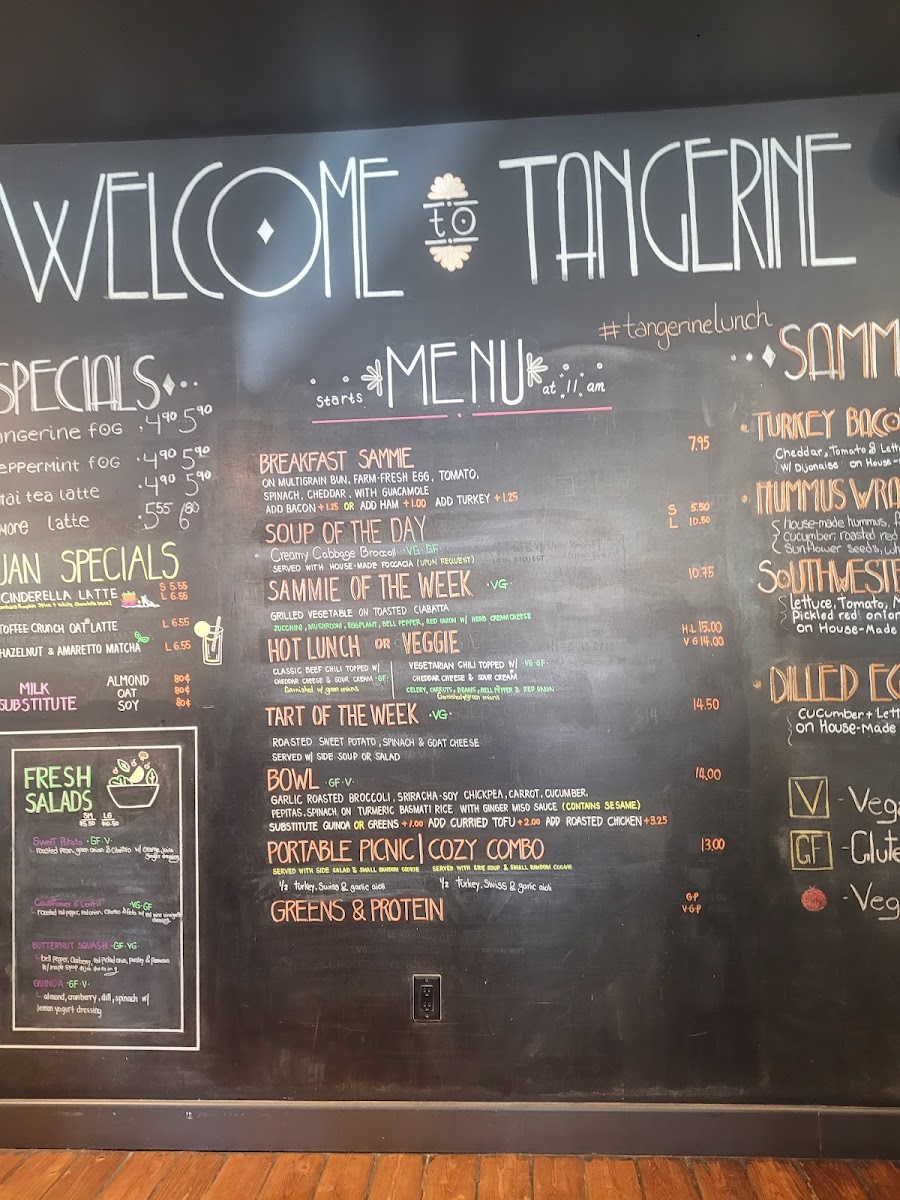 WELCOME to TANGERINE
#tangerinelunch
SPECIALS
angerine FOG 4.90 5.90
eppermint FOG 4.90 5.90
hai tea latte 4.90 5.90
more latte 5.55 6.80
UAN SPECIALS
CINDERELLA LATTE S 5.55
L 6.55
TOFFEE CRUNCH OAT LATTE L 6.55
HAZELNUT & AMARETTO MATCHA L 6.55
MILK SUBSTITUTE
ALMOND 80¢
OAT 80¢
SOY 80¢
FRESH SALADS
SM LG
Sweet Potato ·GF·V·
roasted pear, green onion & cilantro w/ orange juice
ginger dressing
Cauliflower & Lentil ·VG·GF
BUTTERNUT SQUASH ·GF·VG·
QUINOA ·GF·V·
almond, cranberry, dill, spinach w/
lemon yogurt dressing
starts MENU at 11 am
BREAKFAST SAMMIE 7.95
ON MULTIGRAIN BUN, FARM-FRESH EGG, TOMATO,
SPINACH, CHEDDAR, WITH GUACAMOLE
ADD BACON +1.25 OR ADD HAM +1.00 ADD TURKEY +1.25
SOUP OF THE DAY S 5.50
L 10.50
Creamy Cabbage Broccoli ·VG·GF·
SERVED WITH HOUSE-MADE FOCCACIA (UPON REQUEST)
SAMMIE OF THE WEEK ·VG· 10.75
GRILLED VEGETABLE ON TOASTED CIABATTA
ZUCCHINI, MUSHROOM, EGGPLANT, BELL PEPPER, RED ONION W/ HERB CREAM CHEESE
HOT LUNCH OR VEGGIE HL 15.00
VG 14.00
CLASSIC BEEF CHILI TOPPED W/
CHEDDAR CHEESE & SOUR CREAM ·GF·
Garnished w/ green onions
VEGETARIAN CHILI TOPPED W/ ·VG·GF·
CHEDDAR CHEESE & SOUR CREAM
CELERY, CARROTS, BEANS, BELL PEPPER & RED ONION
Garnished w/ green onions
TART OF THE WEEK ·VG· 14.50
ROASTED SWEET POTATO, SPINACH & GOAT CHEESE
SERVED W/ SIDE SOUP OR SALAD
BOWL ·GF·V· 14.00
GARLIC ROASTED BROCCOLI, SRIRACHA-SOY CHICKPEA, CARROT, CUCUMBER,
PEPITAS, SPINACH ON TURMERIC BASMATI RICE WITH GINGER MISO SAUCE (CONTAINS SESAME)
SUBSTITUTE QUINOA OR GREENS +1.00 ADD CURRIED TOFU +2.00 ADD ROASTED CHICKEN +3.25
PORTABLE PICNIC | COZY COMBO 13.00
SERVED WITH SIDE SALAD & SMALL RANDOM COOKIE SERVED WITH SIDE SOUP & SMALL RANDOM COOKIE
1/2 turkey, Swiss & garlic aioli 1/2 turkey, Swiss & garlic aioli
GREENS & PROTEIN GP
VGP
SAMM
TURKEY BACO
Cheddar, Tomato & Lett
w/ Dijonaise on House-
HUMMUS WRA
house-made hummus, f
cucumber, roasted red
Sunflower Seeds, wh
SOUTHWESTE
Lettuce, Tomato, M
Pickled red onion
on House-Made
DILLED EG
cucumber + Lett
on House-Made
V - Vega
GF - Glute
- Veg